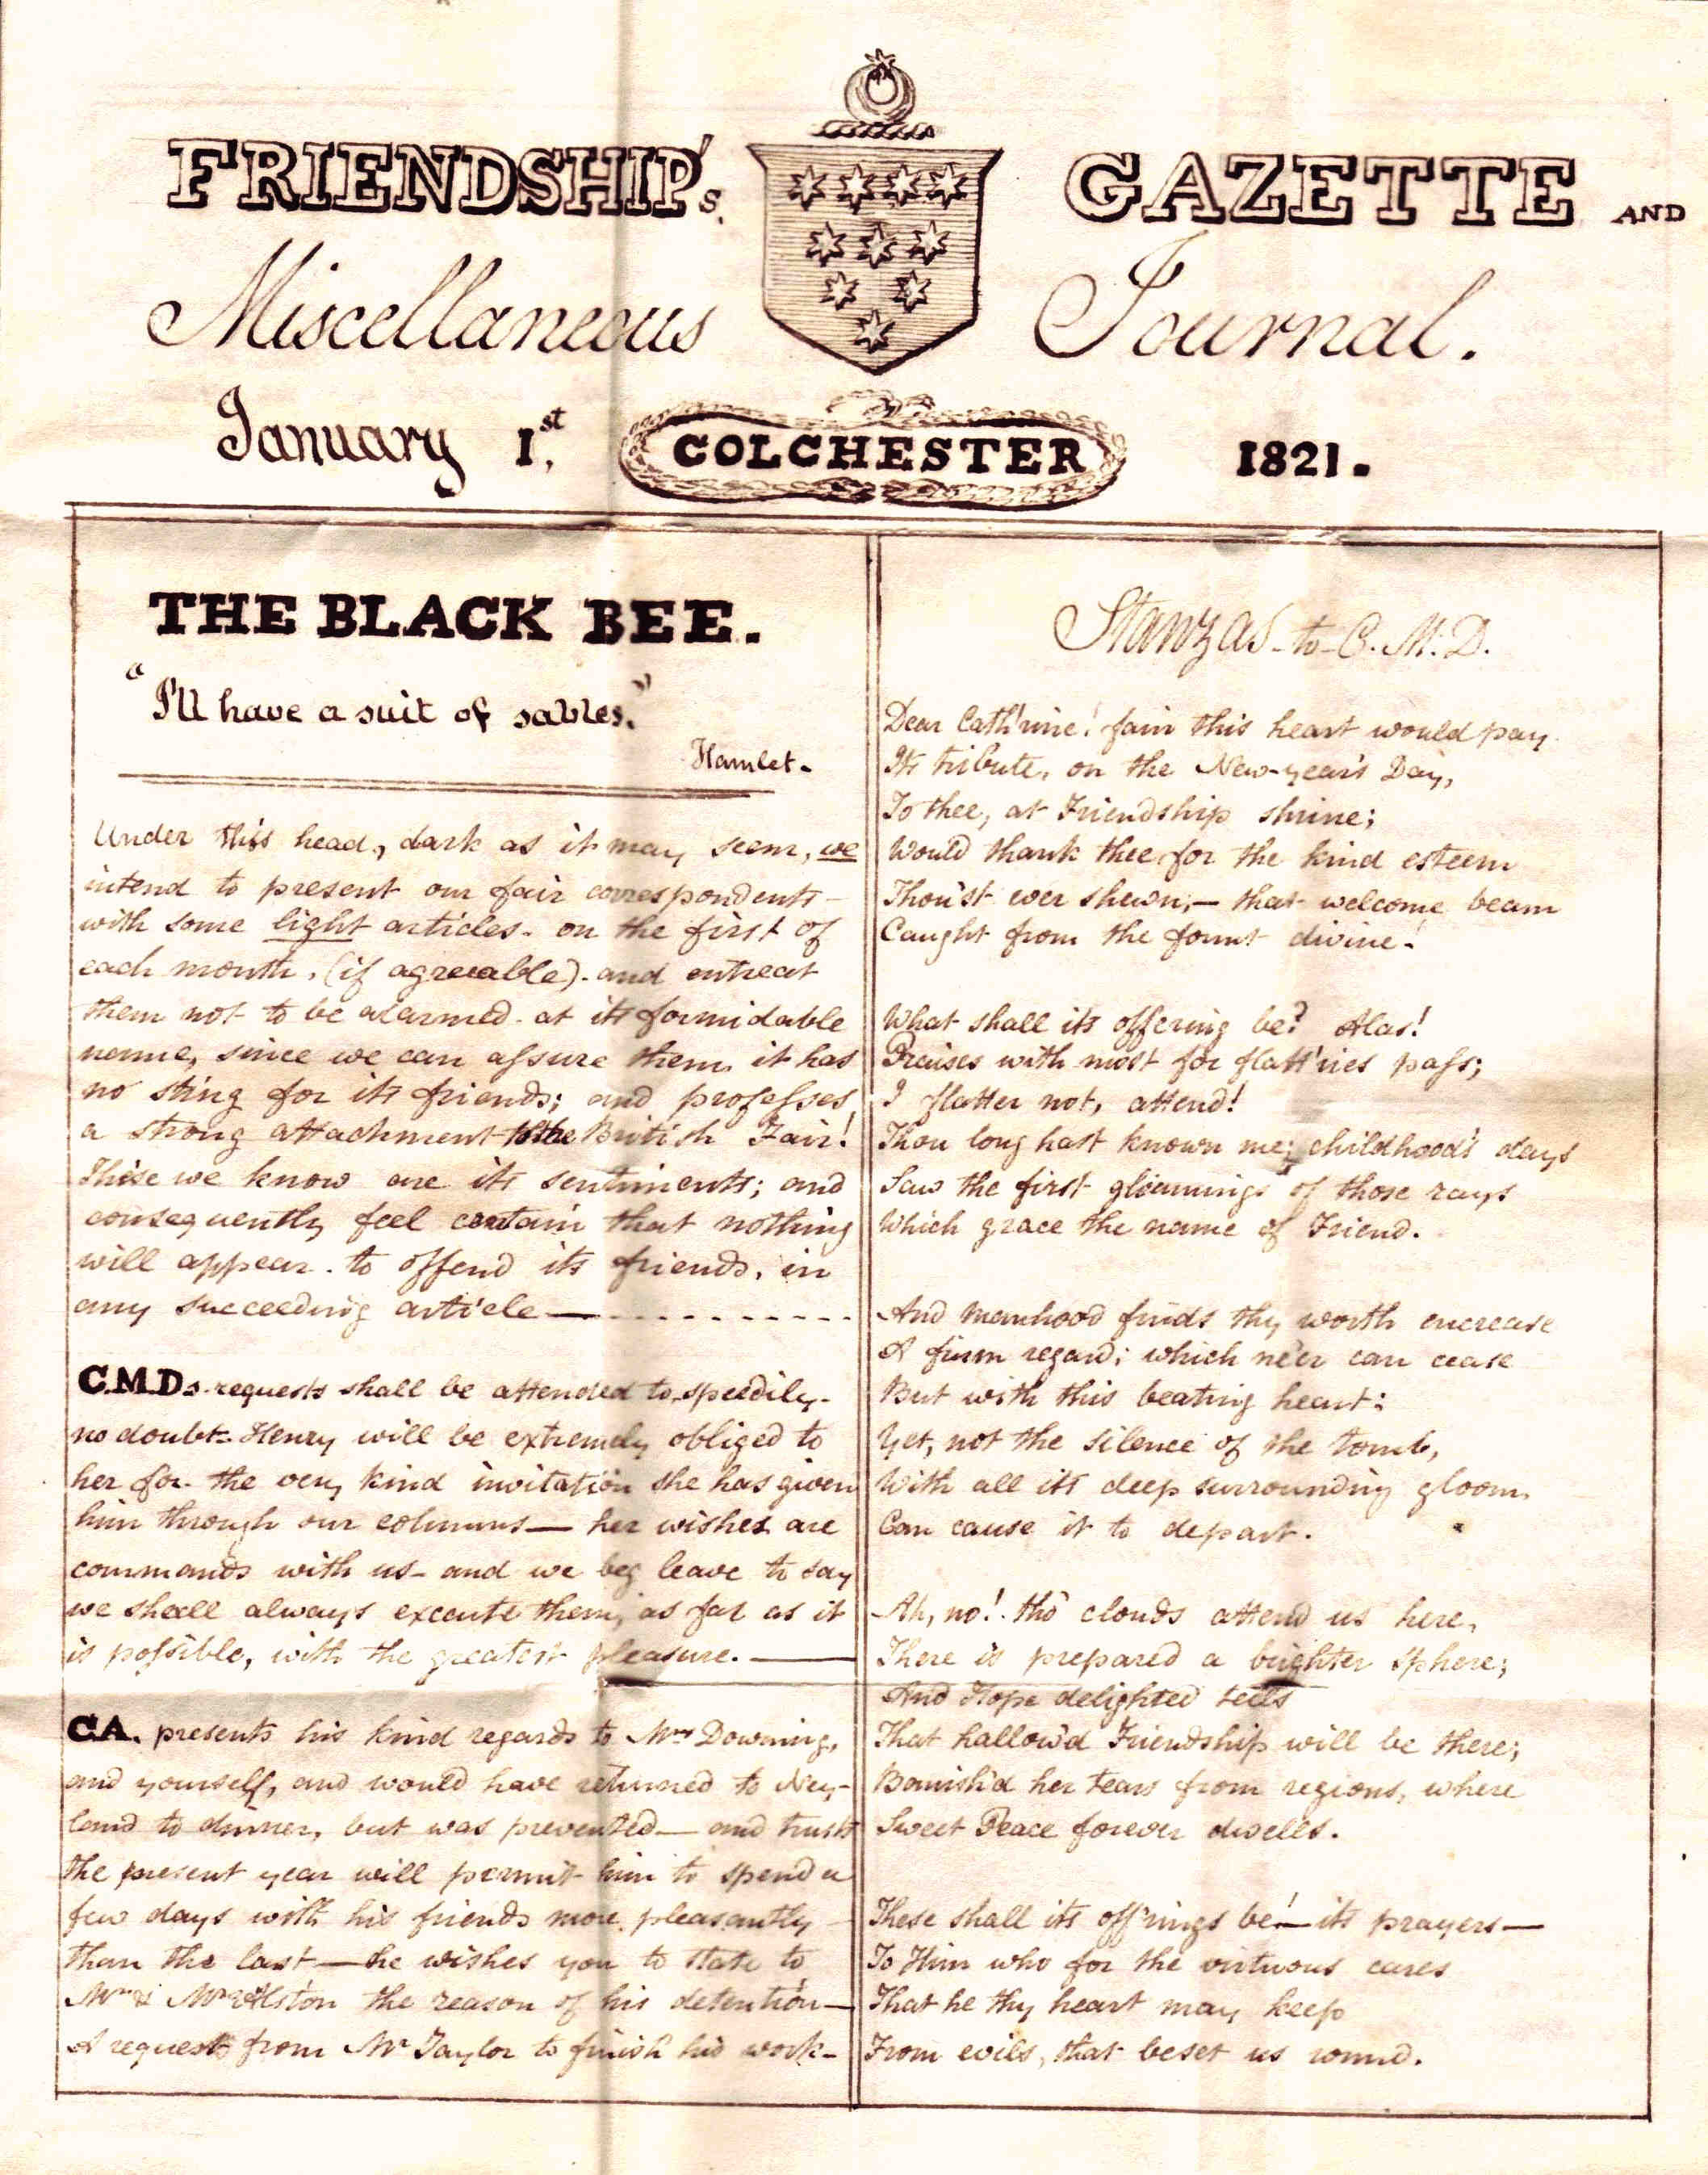 FRIENDSHIP's GAZETTE AND
Miscellaneous Journal.
January 1st, COLCHESTER 1821.
THE BLACK BEE.
"I'll have a suit of sables."
Hamlet.
Under this head, dark as it may seem, we
intend to present our fair correspondents -
with some light articles - on the first of
each month, (if agreeable) - and entreat
them not to be alarmed - at its formidable
name, since we can assure them it has
no sting for its friends; and professes
a strong attachment to the British Fair!
These we know are its sentiments; and
consequently feel certain that nothing
will appear - to offend its friends, in
any succeeding article — - - - - - - - - - -
C.M.Ds. requests shall be attended to speedily -
no doubt - Henry will be extremely obliged to
her for - the very kind invitation she has given
him through our columns — her wishes are
commands with us - and we beg leave to say
we shall always execute them, as far as it
is possible, with the greatest pleasure. —
C.A. presents his kind regards to Mrs Downing,
and yourself, and would have returned to Ney-
land to dinner, but was prevented — and trusts
the present year will permit him to spend a
few days with his friends more pleasantly -
than the last — he wishes you to state to
Mr & Mrs Alston the reason of his detention —
A request from Mr Taylor to finish his work -
Stanzas - to - C. M. D.
Dear Cath'rine! fain this heart would pay
Its tribute, on the New-year's Day,
To thee, at Friendship shrine;
Would thank thee for the kind esteem
Thou'st ever shewn; — that welcome beam
Caught from the fount divine!
What shall its offering be? Alas!
Praises with most for flatt'ries pass;
I flatter not, attend!
Thou long hast known me; childhood's days
Saw the first gleamings of those rays
Which grace the name of Friend.
And manhood finds thy worth encrease
A firm regard; which ne'er can cease
But with this beating heart:
Yet, not the silence of the tomb,
With all its deep surrounding gloom
Can cause it to depart.
Ah, no! tho' clouds attend us here,
There is prepared a brighter sphere;
And Hope delighted tells
That hallow'd Friendship will be there;
Banish'd her tears from regions, where
Sweet Peace forever dwells.
These shall its off'rings be! — its prayers —
To Him who for the virtuous cares
That he thy heart may keep
From evils, that beset us round.